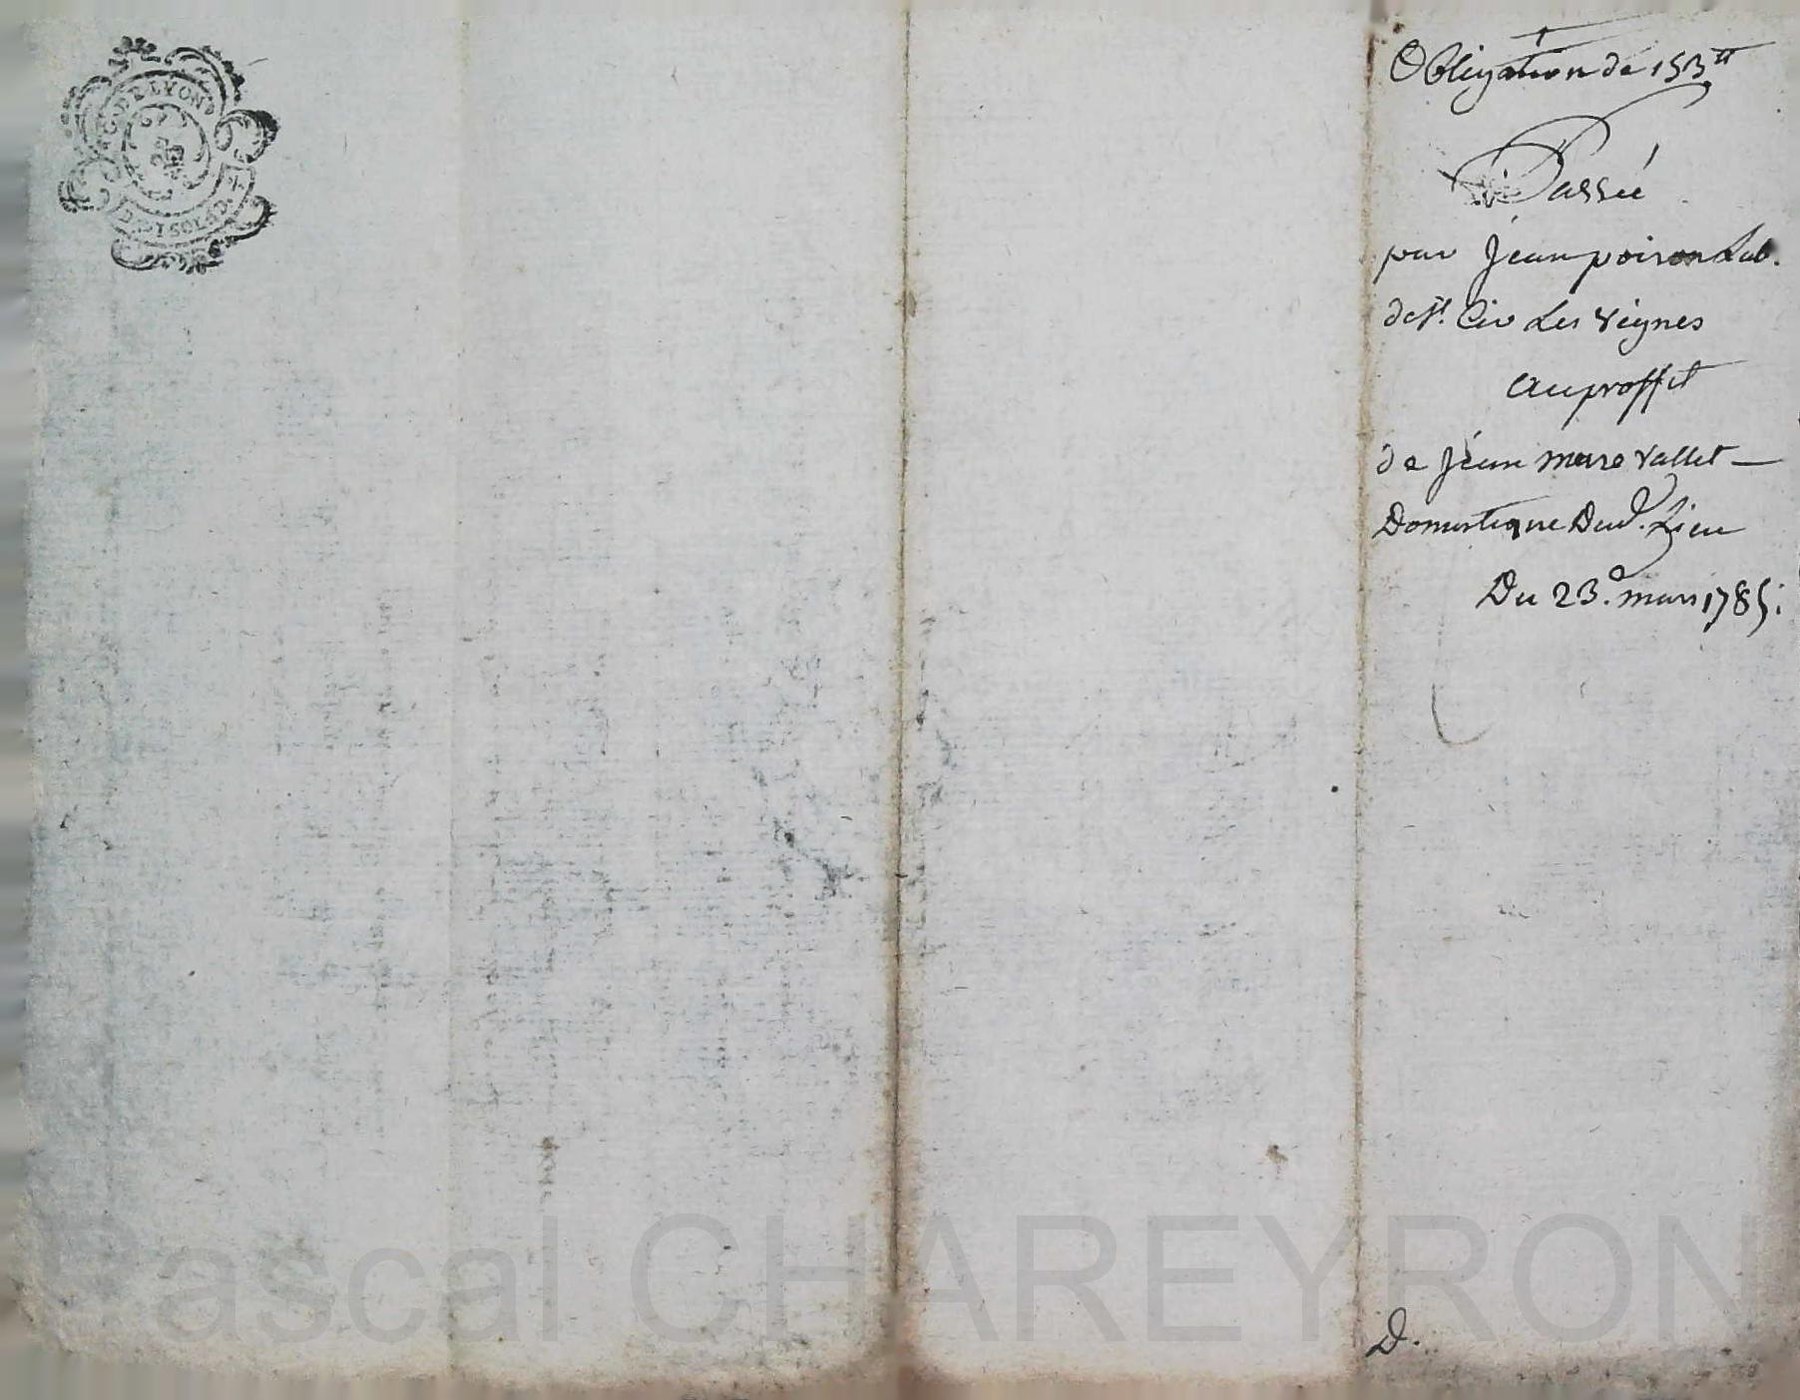 G. DE LYON
DEUX SOLS 4. D.
Obligation de 153 tt
Passée
par Jean poiron Lab.
de st. Cir Les vignes
au proffit
de Jean marc vallet —
Domestique Dud. Lieu
Du 23. mars 1785.
D.
Pascal CHAREYRON